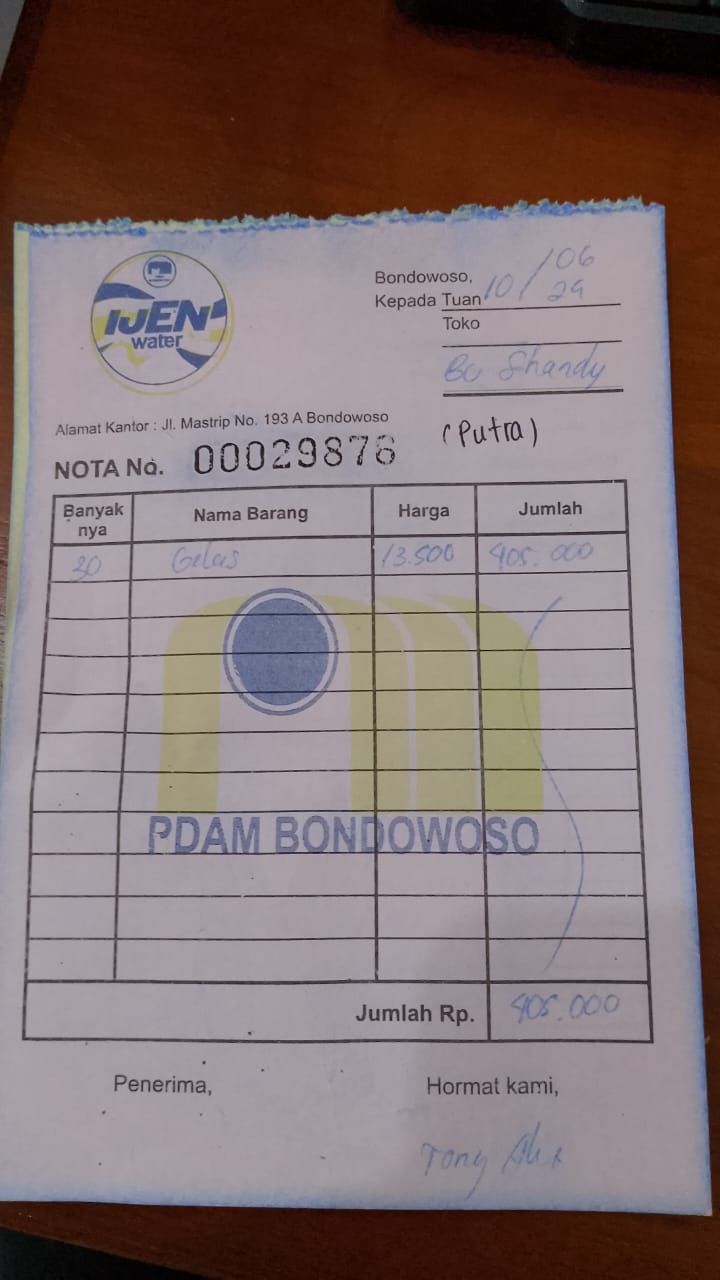 IJEN
water
Bondowoso, 10/06
Kepada Tuan 24
Toko
Bu Shandy
Alamat Kantor : Jl. Mastrip No. 193 A Bondowoso
(Putra)
NOTA No. 00029876
Banyak nya Nama Barang Harga Jumlah
30 Gelas 13.500 405.000
PDAM BONDOWOSO
Jumlah Rp. 405.000
Penerima, Hormat kami,
Tony